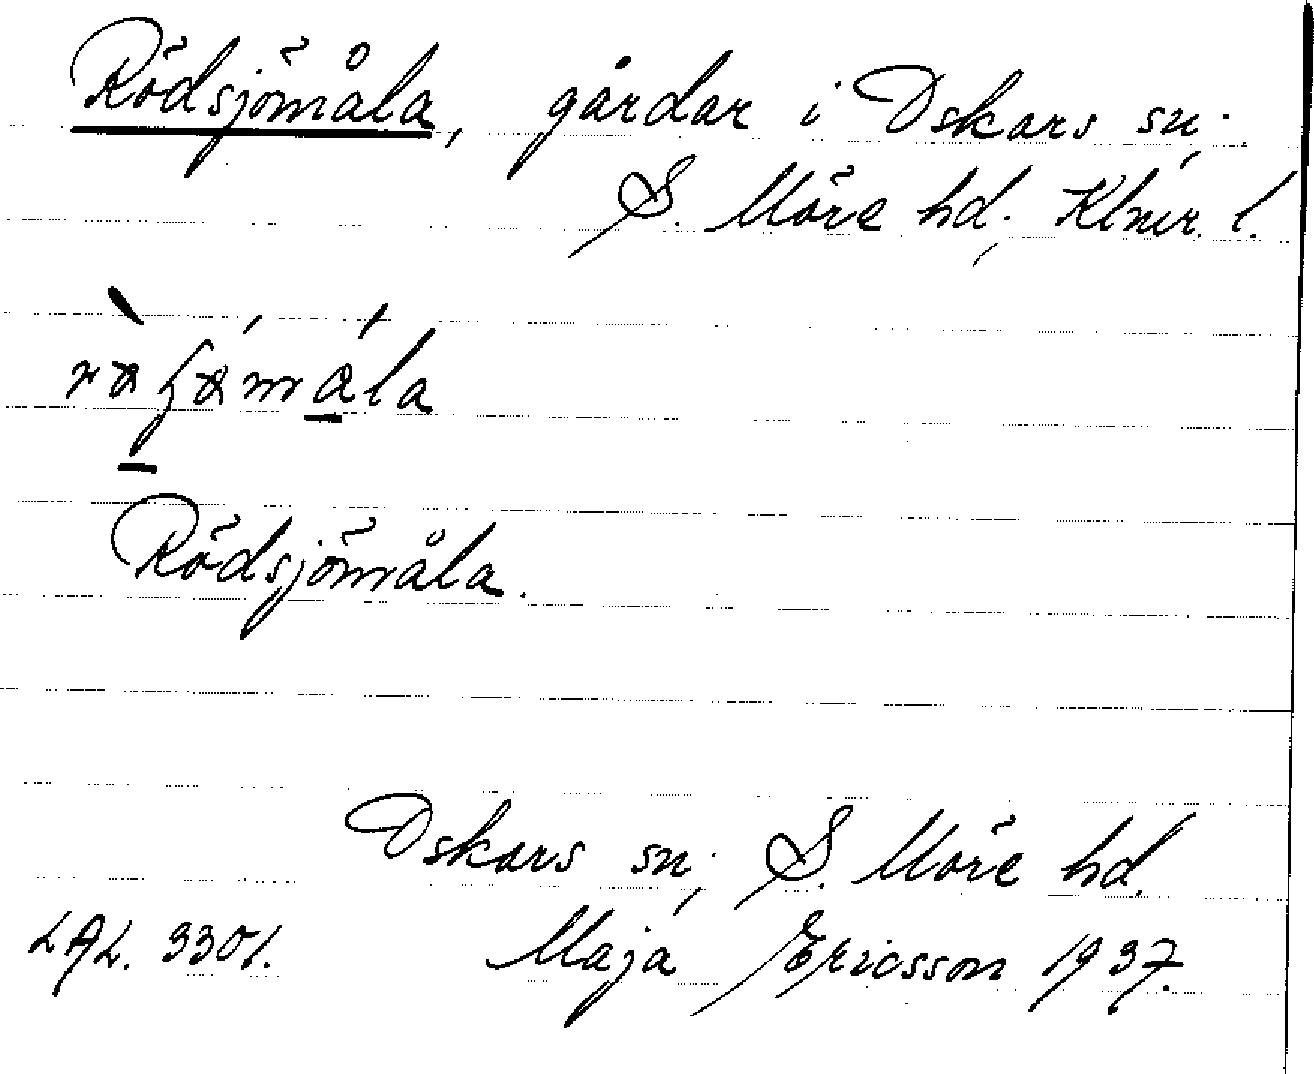 Rödsjömåla, gårdar i Oskars sn;
S. Möre hd; Klmr. l.
Rödsjömåla.
Oskars sn; S. Möre hd.
LAL. 3301. Maja Ericsson 1937.